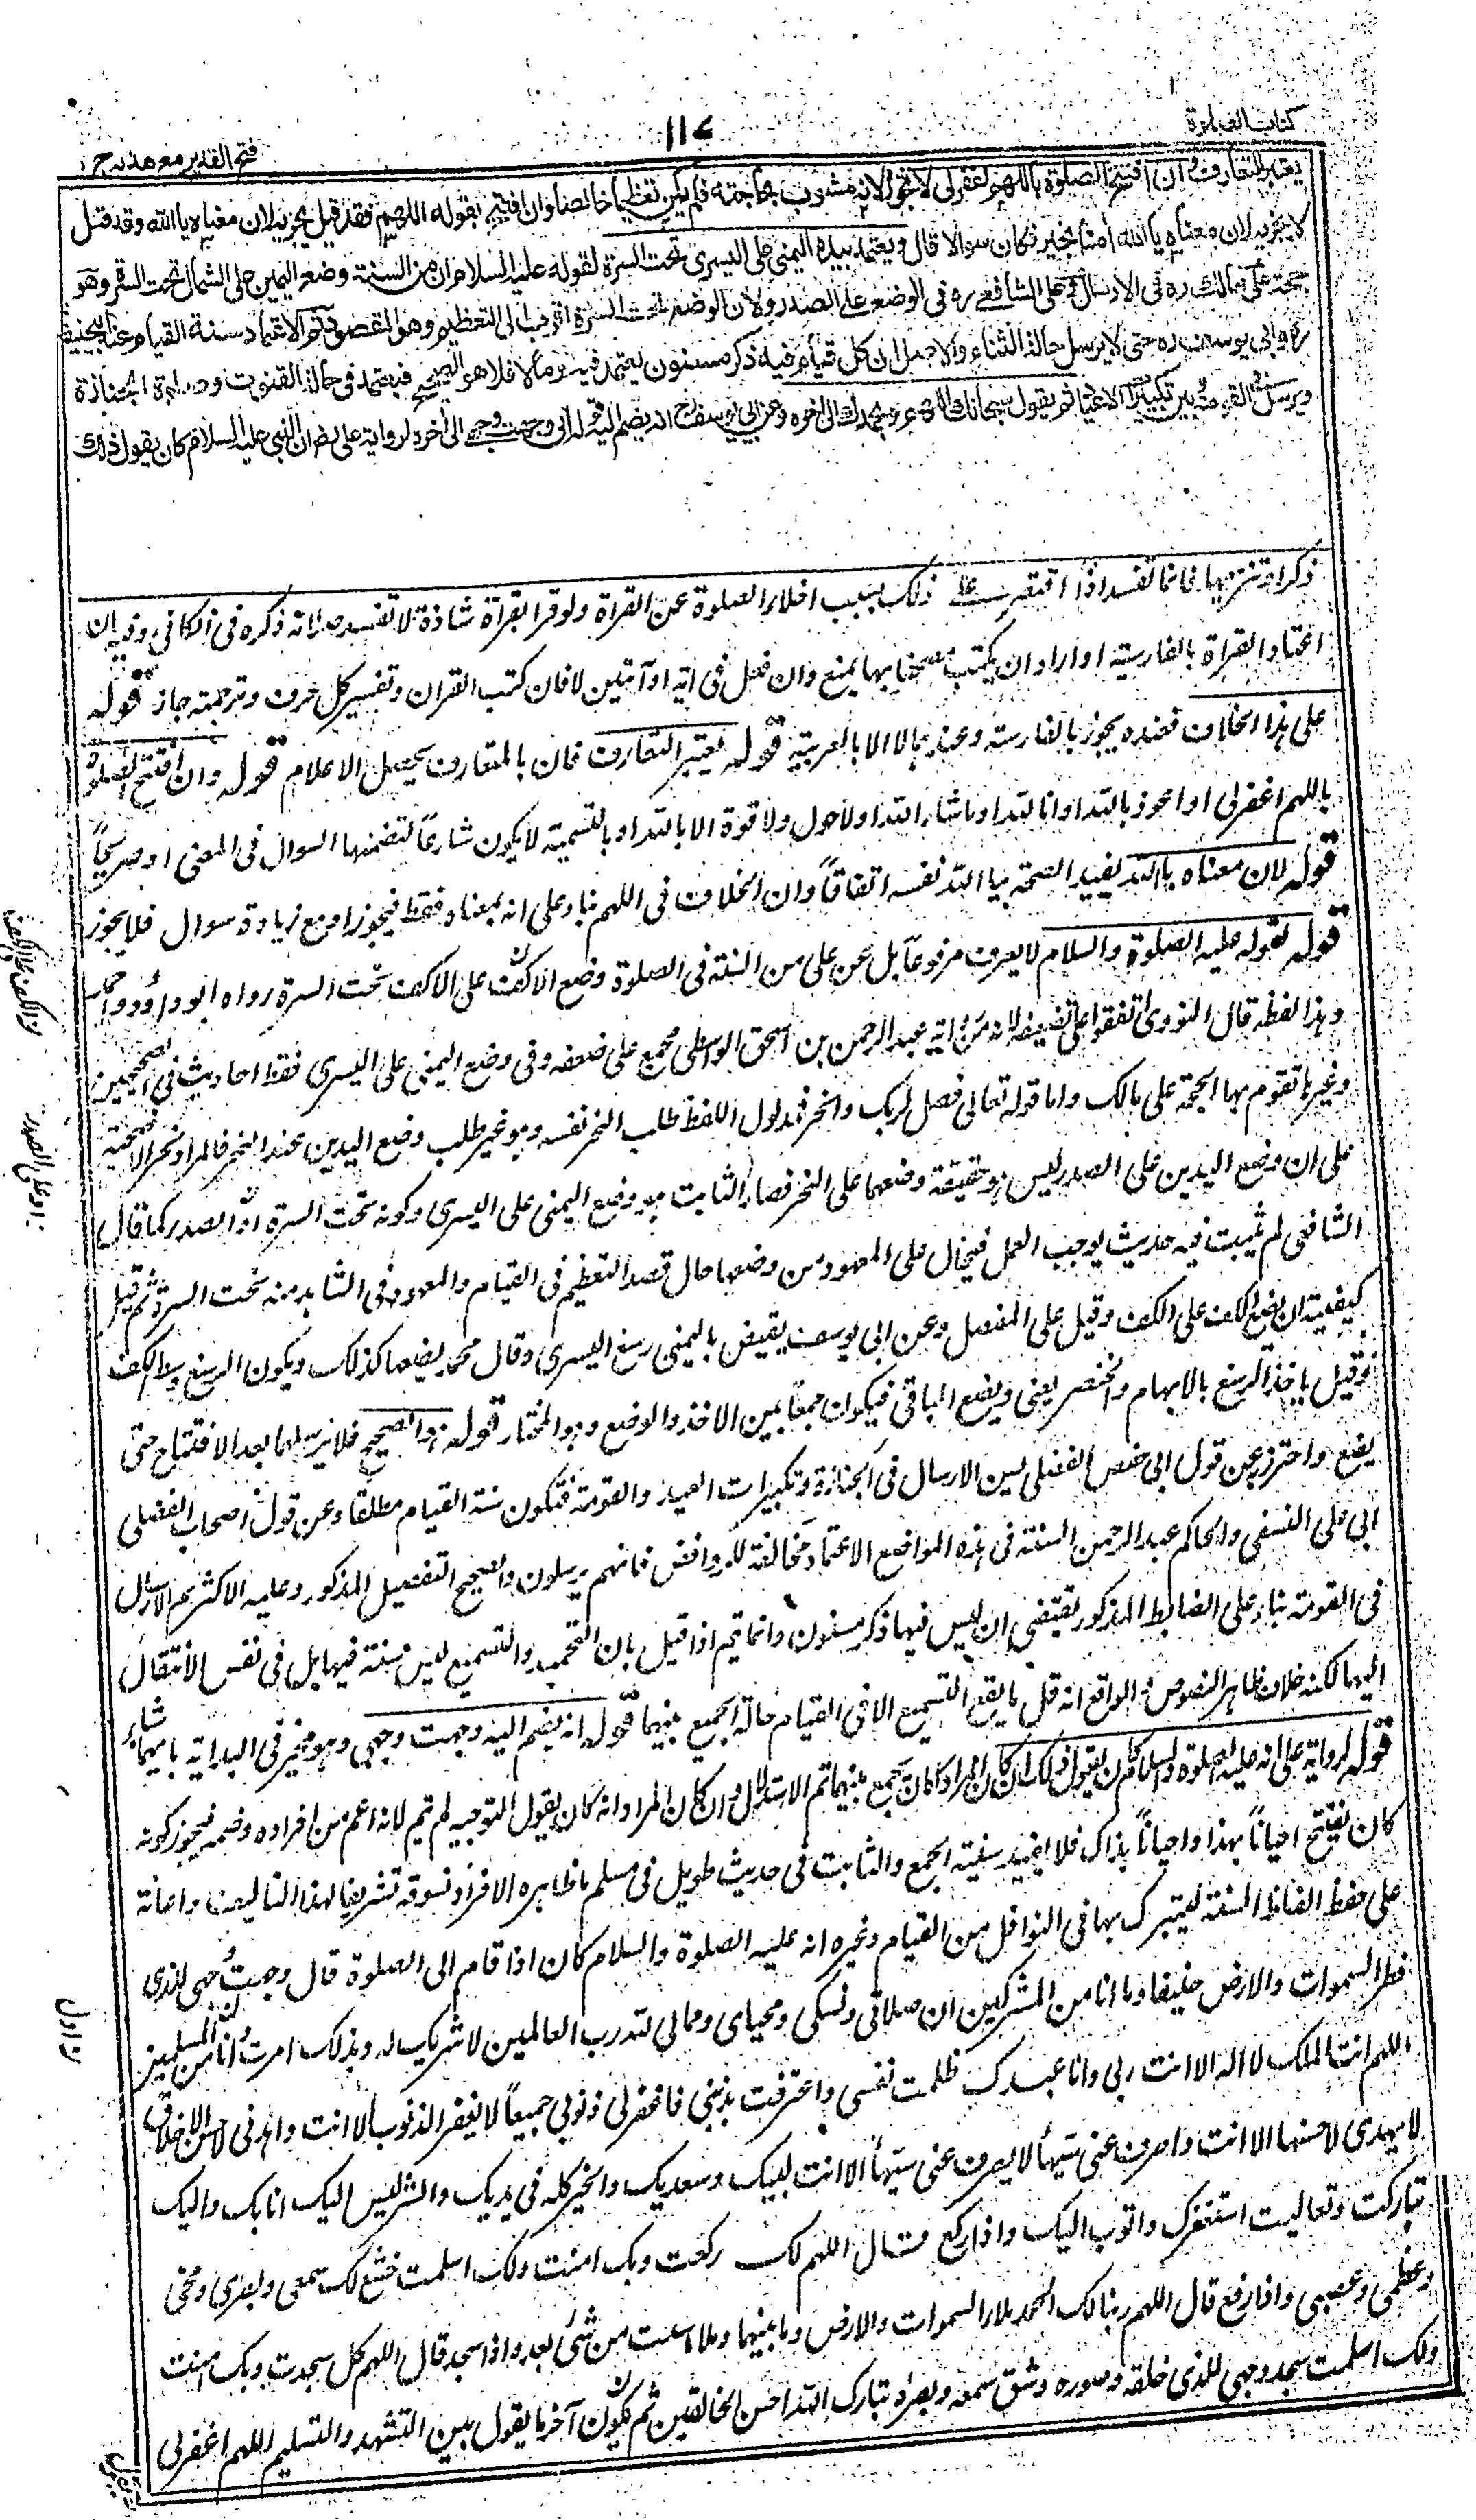 كتاب الصلوة
١١٧
فتح القدير مع هدايه ج ١
يعتبر التعارف وان افتتح الصلوة باللهم اغفرلى لا تجوز لانه مشوب بحاجته فلم يكن تعظيما خالصا وان افتتح بقوله اللهم فقد قيل يجزيه لان معناه يا الله وقد قيل
لا يجزيه لان معناه يا الله امنا بخير فكان سوالا قال ويعتمد بيده اليمنى على اليسرى تحت السرة لقوله عليه السلام ان من السنة وضع اليمين على الشمال تحت السرة وهو
حجة على مالك ره فى الارسال وعلى الشافعى ره فى الوضع على الصدر ولان الوضع تحت السرة اقرب الى التعظيم وهو المقصود ثم الاعتماد سنة القيام عند ابيحنيفة
ره وابى يوسف ره حتى لا يرسل حالة الثناء والاصل ان كل قيام فيه ذكر مسنون يعتمد فيه وما لا فلا هو الصحيح فيعتمد فى حالة القنوت وصلوة الجنازة
ويرسل فى القومة وبين تكبيرات الاعياد ثم يقول سبحانك اللهم وبحمدك الى اخره وعن ابى يوسف رح انه يضم اليه قوله انى وجهت وجهى الى اخره لرواية على رض ان النبى عليه السلام كان يقول ذلك
ذكرا وتنزيها فانما تفسد اذا اقتصر على ذلك بسبب اخلاء الصلوة عن القراة ولو قرا بقراة شاذة لا تفسد صلاته ذكره فى الكافى وفيه ان
اعتاد القراة بالفارسية او اراد ان يكتب مصحفا بها يمنع وان فعل فى اية او آيتين لا فان كتب القران وتفسير كل حرف وترجمته جاز قوله
على هذا الخلاف فعنده يجوز بالفارسية وعندهما لا الا بالعربية قوله يعتبر التعارف فان بالمتعارف يحصل الاعلام قوله وان افتتح الصلوة
باللهم اغفرلى او اعوذ بالله او انا لله او ما شاء الله او لا حول ولا قوة الا بالله او بالتسمية لا يكون شارعا لتضمنها السوال فى المعنى او صريحاً
قوله لان معناه يا الله يفيد الصحة بيا الله نفسه اتفاقاً وان الخلاف فى اللهم بناء على انه بمعناه فقط فيجوز او مع زيادة سوال فلا يجوز
قوله لقوله عليه الصلوة والسلام لا يعرف مرفوعاً بل عن على من السنة فى الصلوة وضع الاكف على الاكف تحت السرة رواه ابو داؤد واحمد
وهذا لفظه قال النووى اتفقوا على تضعيفه لانه من رواية عبد الرحمن بن اسحق الواسطى مجمع على ضعفه وفى وضع اليمنى على اليسرى فقط احاديث فى الصحيحين
وغيرها تقوم بها الحجة على مالك واما قوله تعالى فصل لربك وانحر فمدلول اللفظ طلب النحر نفسه وهو غير طلب وضع اليدين عند النحر فالمراد نحر الاضحية
على ان وضع اليدين على الصدر ليس هو حقيقة وضعهما على النحر فصار الثابت هو وضع اليمنى على اليسرى وكونه تحت السرة او الصدر كما قال
الشافعى لم يثبت فيه حديث يوجب العمل فيحال على المعهود من وضعها حال قصد التعظيم فى القيام والمعهود فى الشاهد منه تحت السرة ثم قيل
كيفيته ان يضع الكف على الكف وقيل على المفصل وعن ابى يوسف يقبض باليمنى رسغ اليسرى وقال محمد يضعها كذلك ويكون الرسغ وسط الكف
وقيل ياخذ الرسغ بالابهام والخنصر يعنى ويضع الباقى فيكون جمعاً بين الاخذ والوضع وهو المختار قوله هو الصحيح فلا يرسلهما بعد الافتتاح حتى
يضع واحترز به عن قول ابى حفص الفضلى يسن الارسال فى الجنازة وتكبيرات العيد والقومة فتكون سنة القيام مطلقا وعن قول اصحاب الفضلى
ابى على النسفى والحاكم عبد الرحمن السنة فى هذه المواضع الاعتماد مخالفة للروافض فانهم يرسلون والصحيح التفصيل المذكور وعليه الاكثر ثم الارسال
فى القومة بناء على الضابط المذكور يقتضى ان ليس فيها ذكر مسنون وانما يتم اذا قيل بان التحميد والتسميع ليس سنة فيها بل فى نفس الانتقال
اليها لكنه خلاف ظاهر النصوص والواقع انه قل ما يقع التسميع الا فى القيام حالة الجمع بينهما قوله انه يضم اليه وجهت وجهى وهو مخير فى البداية بايهما شاء
قوله لرواية على انه عليه الصلوة والسلام كان يقول ذلك ان كان المراد كان يجمع بينهما تم الاستدلال وان كان المراد انه كان يقول التوجيه لم يتم لانه اعم من افراده وضمه فيجوز كونه
كان يفتتح احياناً بهذا واحياناً بذاك فلا يفيد سنية الجمع والثابت فى حديث طويل فى مسلم ما ظاهره الافراد نسوقه تشريفا لهذا التاليف واعانة
على حفظ الفاظ السنة ليتبرك بها فى النوافل من القيام وغيره انه عليه الصلوة والسلام كان اذا قام الى الصلوة قال وجهت وجهى للذى
فطر السموات والارض حنيفا وما انا من المشركين ان صلاتى ونسكى ومحياى ومماتى لله رب العالمين لا شريك له وبذلك امرت وانا من المسلمين
اللهم انت الملك لا اله الا انت ربى وانا عبدك ظلمت نفسى واعترفت بذنبى فاغفرلى ذنوبى جميعاً لا يغفر الذنوب الا انت واهدنى لاحسن الاخلاق
لا يهدى لاحسنها الا انت واصرف عنى سيئها لا يصرف عنى سيئها الا انت لبيك وسعديك والخير كله فى يديك والشر ليس اليك انا بك واليك
تباركت وتعاليت استغفرك واتوب اليك واذا ركع قال اللهم لك ركعت وبك امنت ولك اسلمت خشع لك سمعى وبصرى ومخى
وعظمى وعصبى واذا رفع قال اللهم ربنا لك الحمد ملاء السموات والارض وما بينهما وملاء ما شئت من شئ بعد واذا سجد قال اللهم لك سجدت وبك امنت
ولك اسلمت سجد وجهى للذى خلقه وصوره وشق سمعه وبصره تبارك الله احسن الخالقين ثم يكون آخر ما يقول بين التشهد والتسليم اللهم اغفرلى
ن الكف على الكف
ن او على الصدر
ن اول